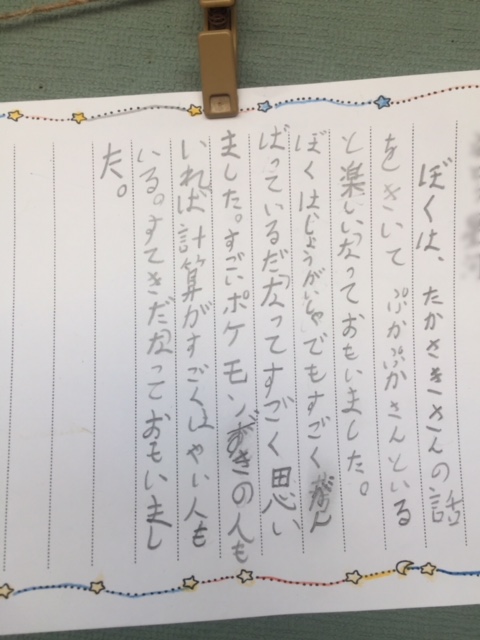 ぼくは、たかさきさんの話
をきいてぷかぷかさんといる
と楽しいなっておもいました。
ぼくはじょうがいしゃでもすごくがん
ばっているだなってすごく思い
ました。すごいポケモンずきの人も
いれば計算がすごくはやい人も
いる。すてきだなっておもいまし
た。